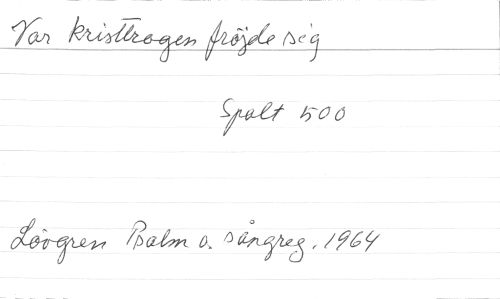 Var kristtrogen fröjde sig
Spalt 500
Lövgren Psalm o. sångreg. 1964